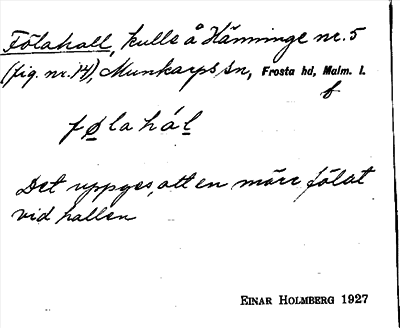 Fölahall, kulle å Hänninge nr. 5
(fig. nr. 14), Munkarps sn, Frosta hd, Malm. l.
f
følahál
Det uppges, att en märr fölat
vid hallen
EINAR HOLMBERG 1927